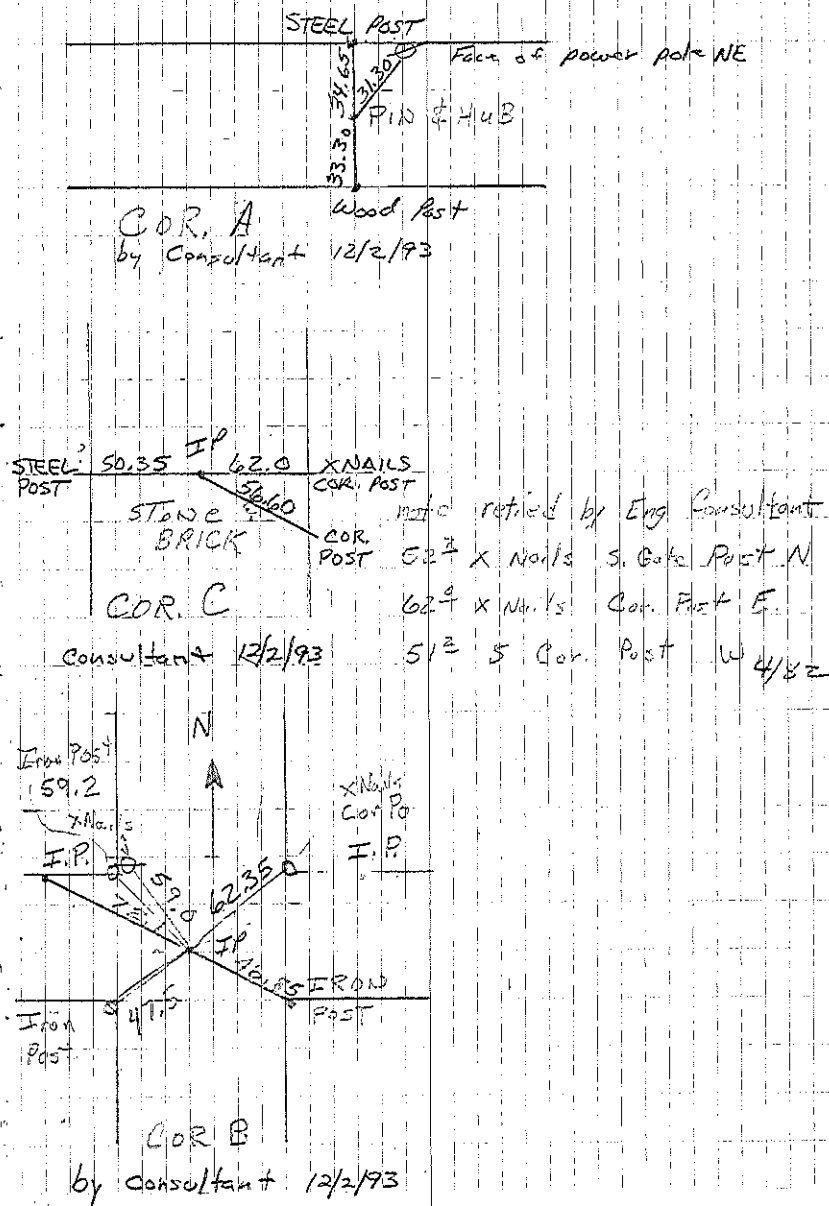 STEEL POST
Face of power pole NE
34.65
31.30
PIN & HUB
33.30
Wood Post
COR. A
by Consultant 12/2/93
IP
STEEL POST
50.35
62.0
XNAILS COR. POST
56.60
STONE BRICK
COR. POST
COR. C
Consultant 12/2/93
note retied by Eng Consultant
X Nails S. Gate Post N
62⁹ X Nails Cor. Post E.
51² S Cor. Post W 4/82
N
Iron Post
159.2
XNails
XNails
Cor Po
I.P.
I.P.
59.0
62.35
IP
IRON POST
47.5
Iron Post
COR B
by Consultant 12/2/93